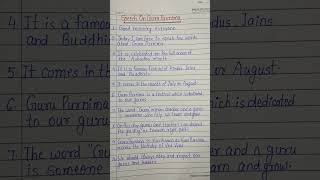 Speech On Guru Purnima
1. Good morning everyone
2. Today I am here to speak few words
about Guru Purnima
3. It is celebrated on full moon of
the Ashadha month
4. It is a famous festival of Hindus, Jains
and Buddhists
5. It comes in the month of July or August
6. Guru Purnima is a festival which is dedicated
to our gurus
7. The word "Guru" means teacher and a guru
is someone who help us learn and grow
8. On this day gurus and teachers
guiding us towards right path
9. Guru Purnima is also known as Vyas Purnima
marks the birthday of Ved Vyas
10. We should always obey and respect our
gurus and teachers
4. It is a famou
and Buddhi
5. It comes in
6. Guru Purnima
to our gu
7. The word "Gu
is someone
dus, Jains
or August.
ch is dedicated
and a guru
rn and grow.